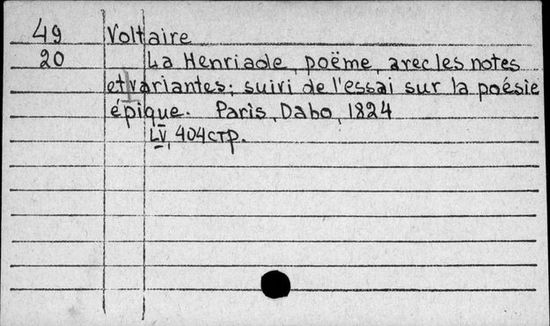 49 Voltaire
20 La Henriade, poëme, avec les notes
et variantes; suivi de l'essai sur la poésie
épique. Paris, Dabo, 1824
LV, 404стр.